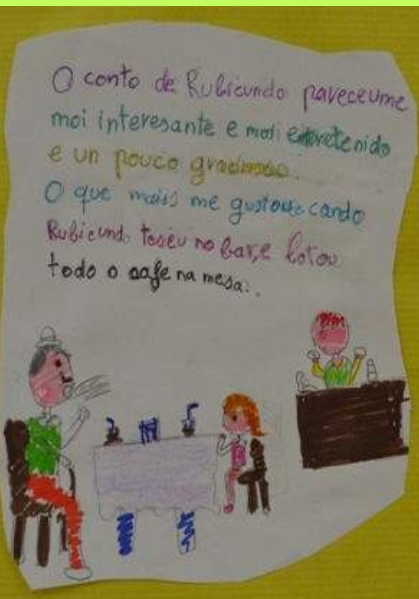 O conto de Rubicundo pareceume
moi interesante e moi entretenido
e un pouco gracioso.
O que mais me gustou é cando
Rubicundo toseu no bar, e botou
todo o cafe na mesa.